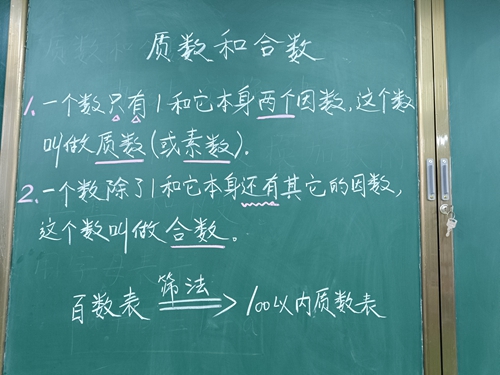 质数和合数
1.一个数只有1和它本身两个因数,这个数
叫做质数(或素数).
2.一个数除了1和它本身还有其它的因数,
这个数叫做合数。
筛法
百数表 ⇒ 100以内质数表